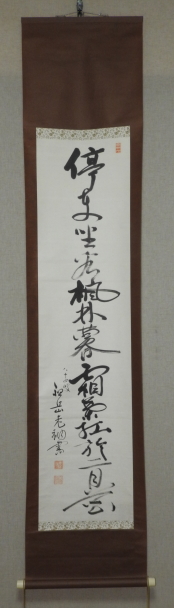 停車坐愛楓林暮霜葉紅於二月花
岳老衲書